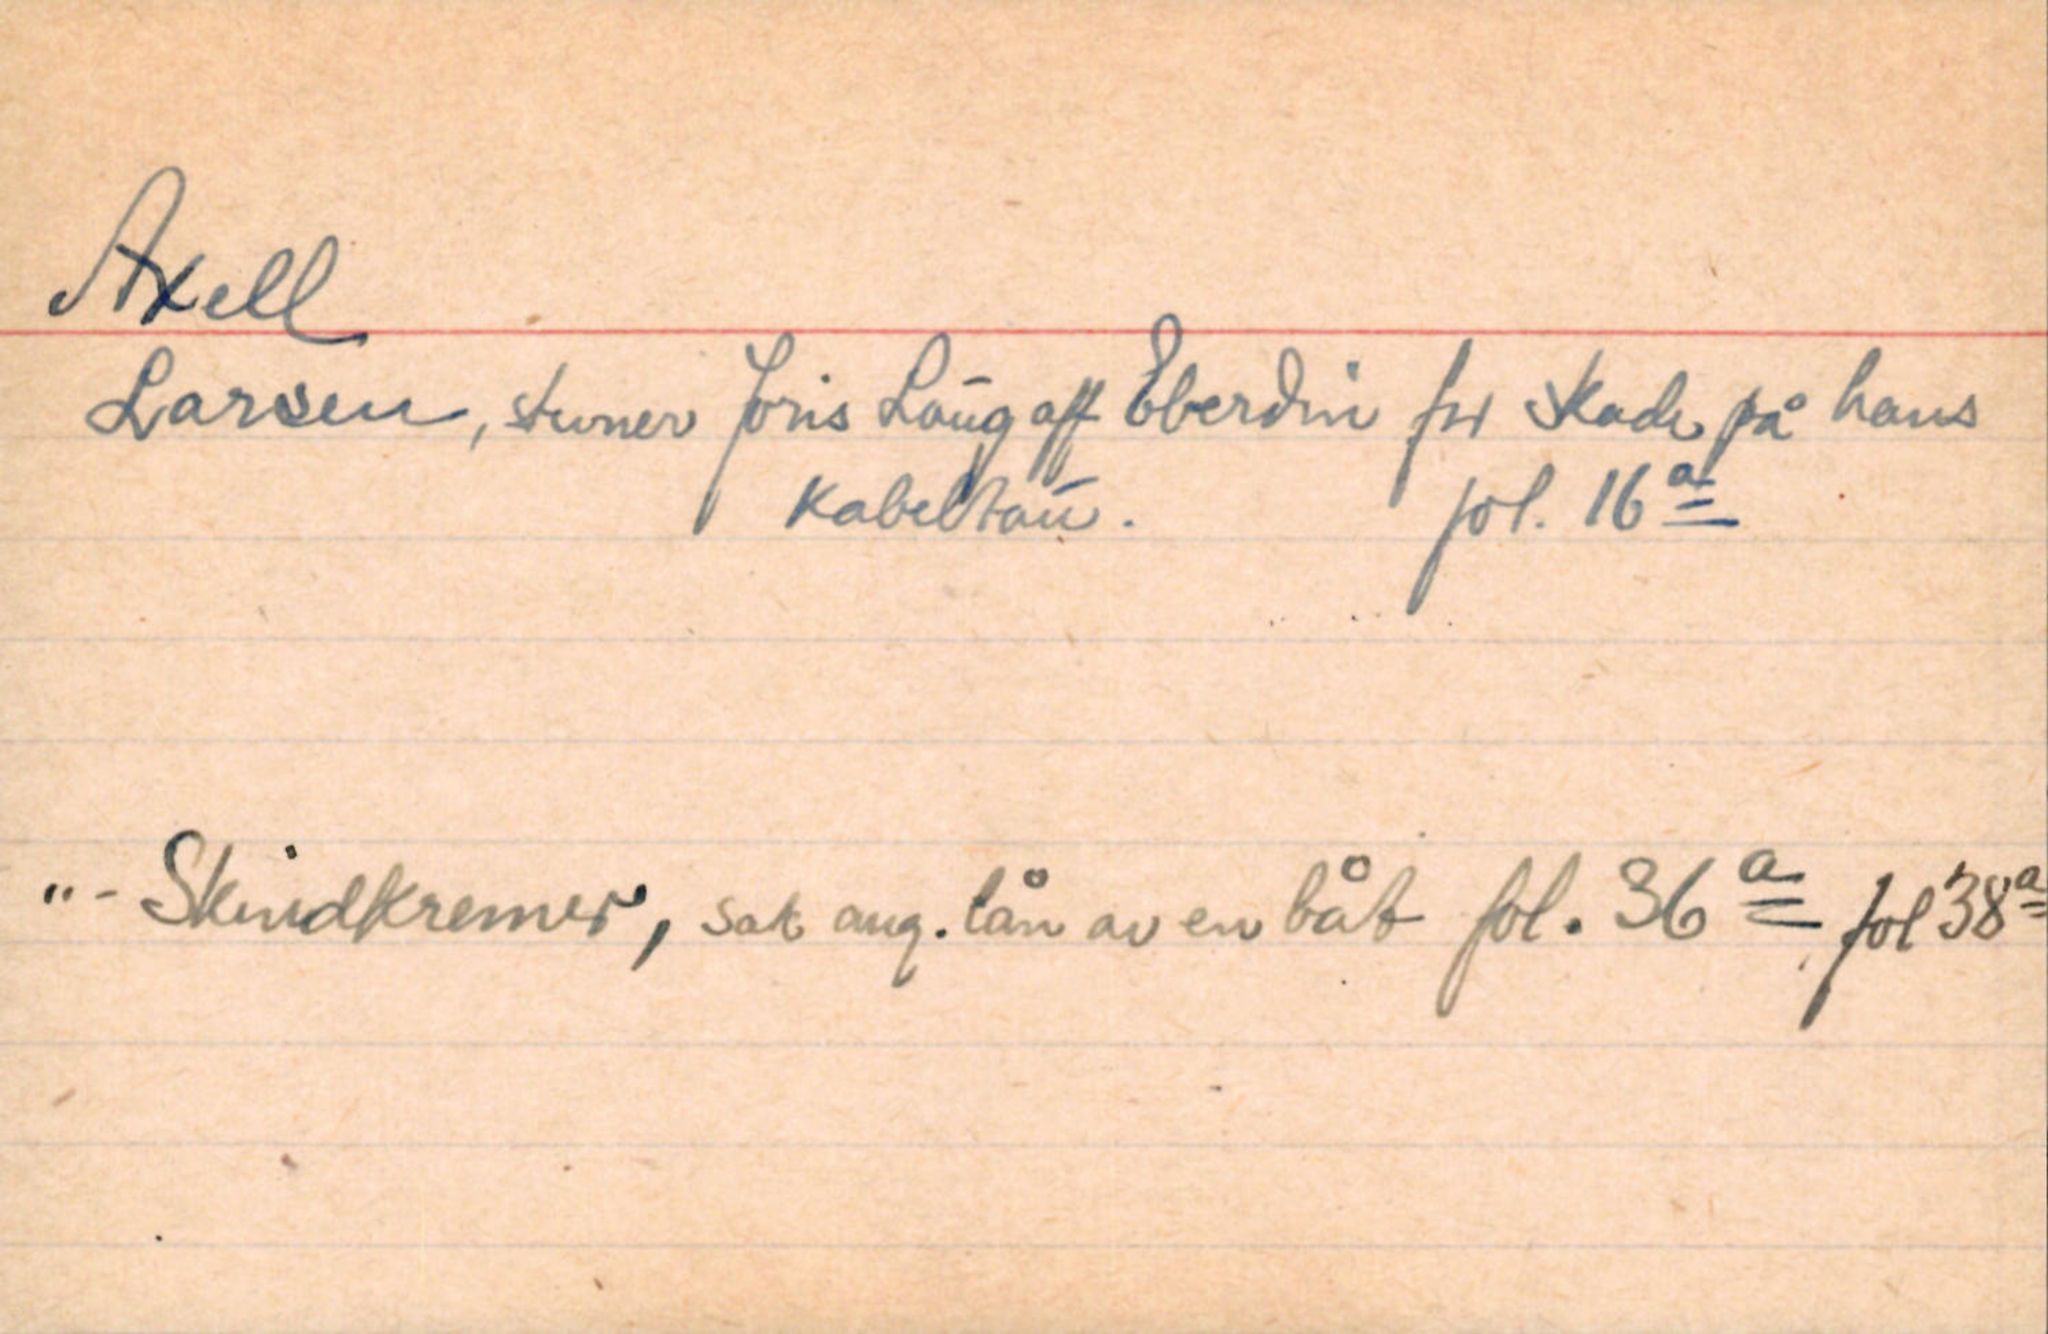 Axell
Larsen, stevner Joris Laūg aff Eberdin for skade på hans
Kabeltaū. fol. 16ª
"- Skindkremer, sak ang. lån av en båt fol. 36ª fol 38ª